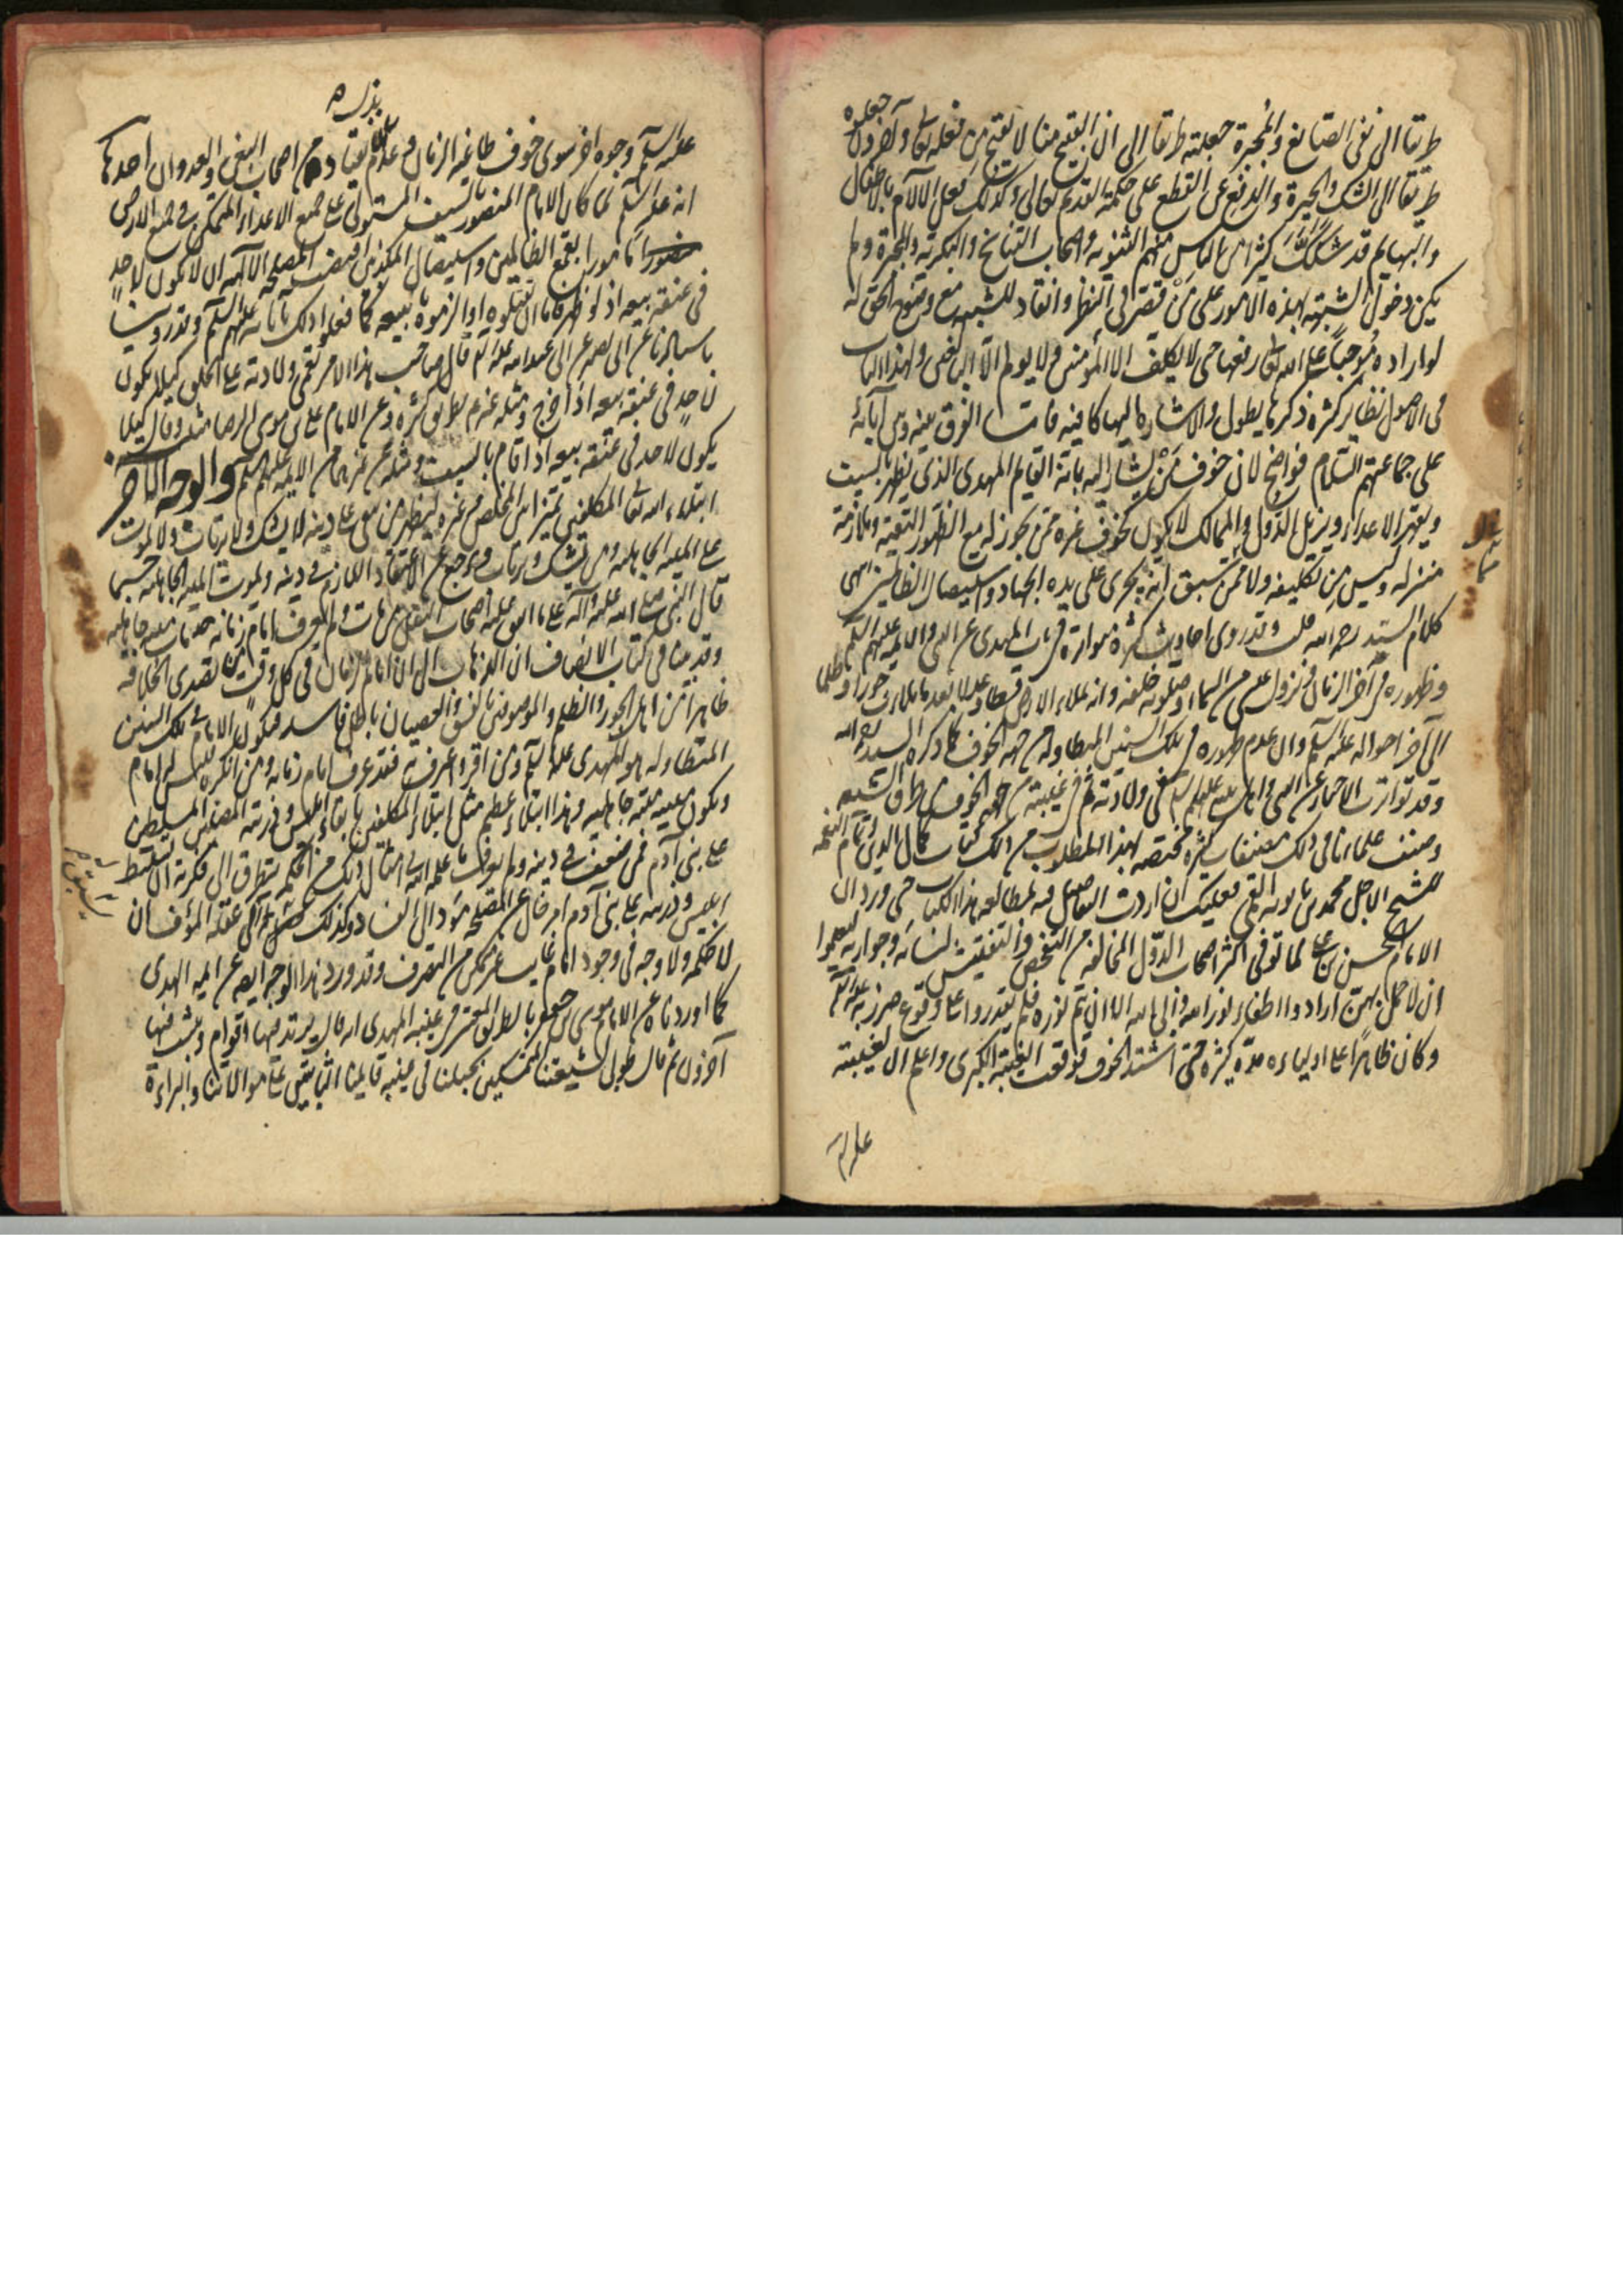 طريقا الى نفى الصانع والمجبرة جعلته طريقا الى ان القبيح منا لا يقبح من فعله تعالى وآخرون جعلوه
طريقا الى الشك والحيرة والدفع عن القطع على حكمة القديم تعالى وكذلك فعل الآلام بالاطفال
والبهايم قد شكك كثيرا من الناس منهم الثنويه واصحاب التناسخ والبكرية والمجبرة ولم
يكن دخول الشبهة بهذه الامور على من قصر فى النظر وانقاد للشبهة مع وضوح الحق له
لو اراده موجبا على الله تعالى رفعها حتى لا يكلف الا المؤمنين ولا يولم الا البالغين ولهذا الباب
فى الاصول نظاير كثيرة ذكرها يطول والاشارة اليها كافية فاما الفرق بينه وبين آبائه
على جماعتهم السلام فواضح لان خوف من يشار اليه بانه القايم المهدى الذى يظهر بالسيف
ويقهر الاعداء ويزيل الدول والممالك لا يكون كخوف غيره ممن يجوز له مع الظهور التقية وملازمة
منزله وليس من تكليفه ولا مما سبق انه يجرى على يده الجهاد واستيصال الظالمين انتهى
كلام السيد رحمه الله قلت وقد روى احاديث كثيرة متواترة فى باب المهدى عن النبى والائمة عليهم السلام
وظهوره فى آخر الزمان ونزول عيسى من السماء وصلوته خلفه وانه يملاء الارض قسطا وعدلا بعد ما ملئت جورا وظلما
الى آخر احواله عليه السلم وان عدم ظهوره فى تلك السنين المتطاولة من جهة الخوف كما ذكره السيد رحمه الله
وقد تواترت الاخبار عن النبى واهل بيته عليهم السلم فى ولادته ثم فى غيبته من جهة الخوف من طرق الشيعه
وصنف علماؤنا فى ذلك مصنفات كثيرة مختصة بهذا المطلوب من ذلك كتاب كمال الدين وتمام النعمه
للشيخ الاجل محمد بن بابويه القمى فعليك ان اردت التفاصيل فيه بمطالعه هذا الكتاب حتى ورد ان
الامام الحسن بن على لما توفى اكثر اصحاب الدول المخالفة من التفحص والتفتيش لنسائه وجواريه ليعلموا
ان لا حمل بهن ارادوا اطفاء نور الله وابى الله الا ان يتم نوره فلم يقدروا على وقوع ضرر به عليه السلم
وكان ظاهرا على اوليائه مدة كثيرة حتى اشتد الخوف فوقعت الغيبة الكبرى واعلم ان لغيبته
عليه السلم
عليه السلم وجوه اخر سوى خوف طاغية الزمان وعدم انقياده من اصحاب البغى والعدوان احدها
انه عليه السلم لما كان الامام المنصور بالسيف المستولى على جميع الاعداء المتمكن فى جميع الارض
مامورا بقمع الظالمين واستيصال المكذبين اقتضت المصلحة الالهية ان لا يكون لاحد
فى عنقه بيعه اذ لو ظهر فاما ان يقتلوه او الزموه ببيعه كما فعلوا ذلك بآبائه عليهم السلم وقد روينا
باسانيدنا عن ابى بصير عن ابى عبد الله عليه السلم قال صاحب هذا الامر تعمى ولادته على الخلق كيلا يكون
لاحد فى عنقه بيعه اذا خرج ومثله عنه بطرق كثيرة وعن الامام على بن موسى الرضا مثله وقال كيلا
يكون لاحد فى عنقه بيعه اذا قام بالسيف ومثله عن غيرهما من الائمه عليهم السلم والوجه الآخر
ابتلاء الله تعالى المكلفين لتميز المخلص من غيره ليظهر من بقى على دينه لا يشك ولا يرتاب ولا يموت
على الميته الجاهليه ومن يشك ويرتاب ويرجع عن الاعتقاد اللازم فى دينه ويموت الميته الجاهلية حسبما
قال النبى صلى الله عليه وآله على ما اتفق عليه اصحاب النقل من مات ولم يعرف امام زمانه مات ميتة جاهلية
وقد بينا فى كتاب الانصاف ان الذهاب الى ان امام الزمان فى كل وقت من تصدى الخلافة
ظاهرا من اهل الجور والظلم والموصوفين بالفسق والعصيان باطل فاسد فيكون الامام فى تلك السنين
المتطاوله هو المهدى عليه السلم ومن اقر واعترف به فقد عرف امام زمانه ومن انكره فليس له امام
ويكون ميتته ميتة جاهلية وهذا ابتلاء عظيم مثل ابتلاء المكلفين بابقاء ابليس وذريته المضلين المسلطين
على بنى آدم فمن ضعف فى دينه ولم يوقن بما علمه الله فى امثال ذلك من الحكمة يتطرق الى فكرته ان تسليط
ابليس وذريته على بنى آدم امر خال عن المصلحة مؤد الى الفساد وكذلك عقله المؤف ان
لا حكمة ولا وجه فى وجود امام غايب غير متمكن من التصرف وقد ورد هذا الوجه ايضا عن ائمة الهدى
كما اوردناه عن الامام موسى بن جعفر بالطريق المعتبر فى غيبة المهدى انه قال يرتد فيها اقوام ويثبت فيها
آخرون ثم قال طوبى لشيعتنا المتمسكين بحبلنا فى غيبة قايمنا الثابتين على موالاتنا والبراءة